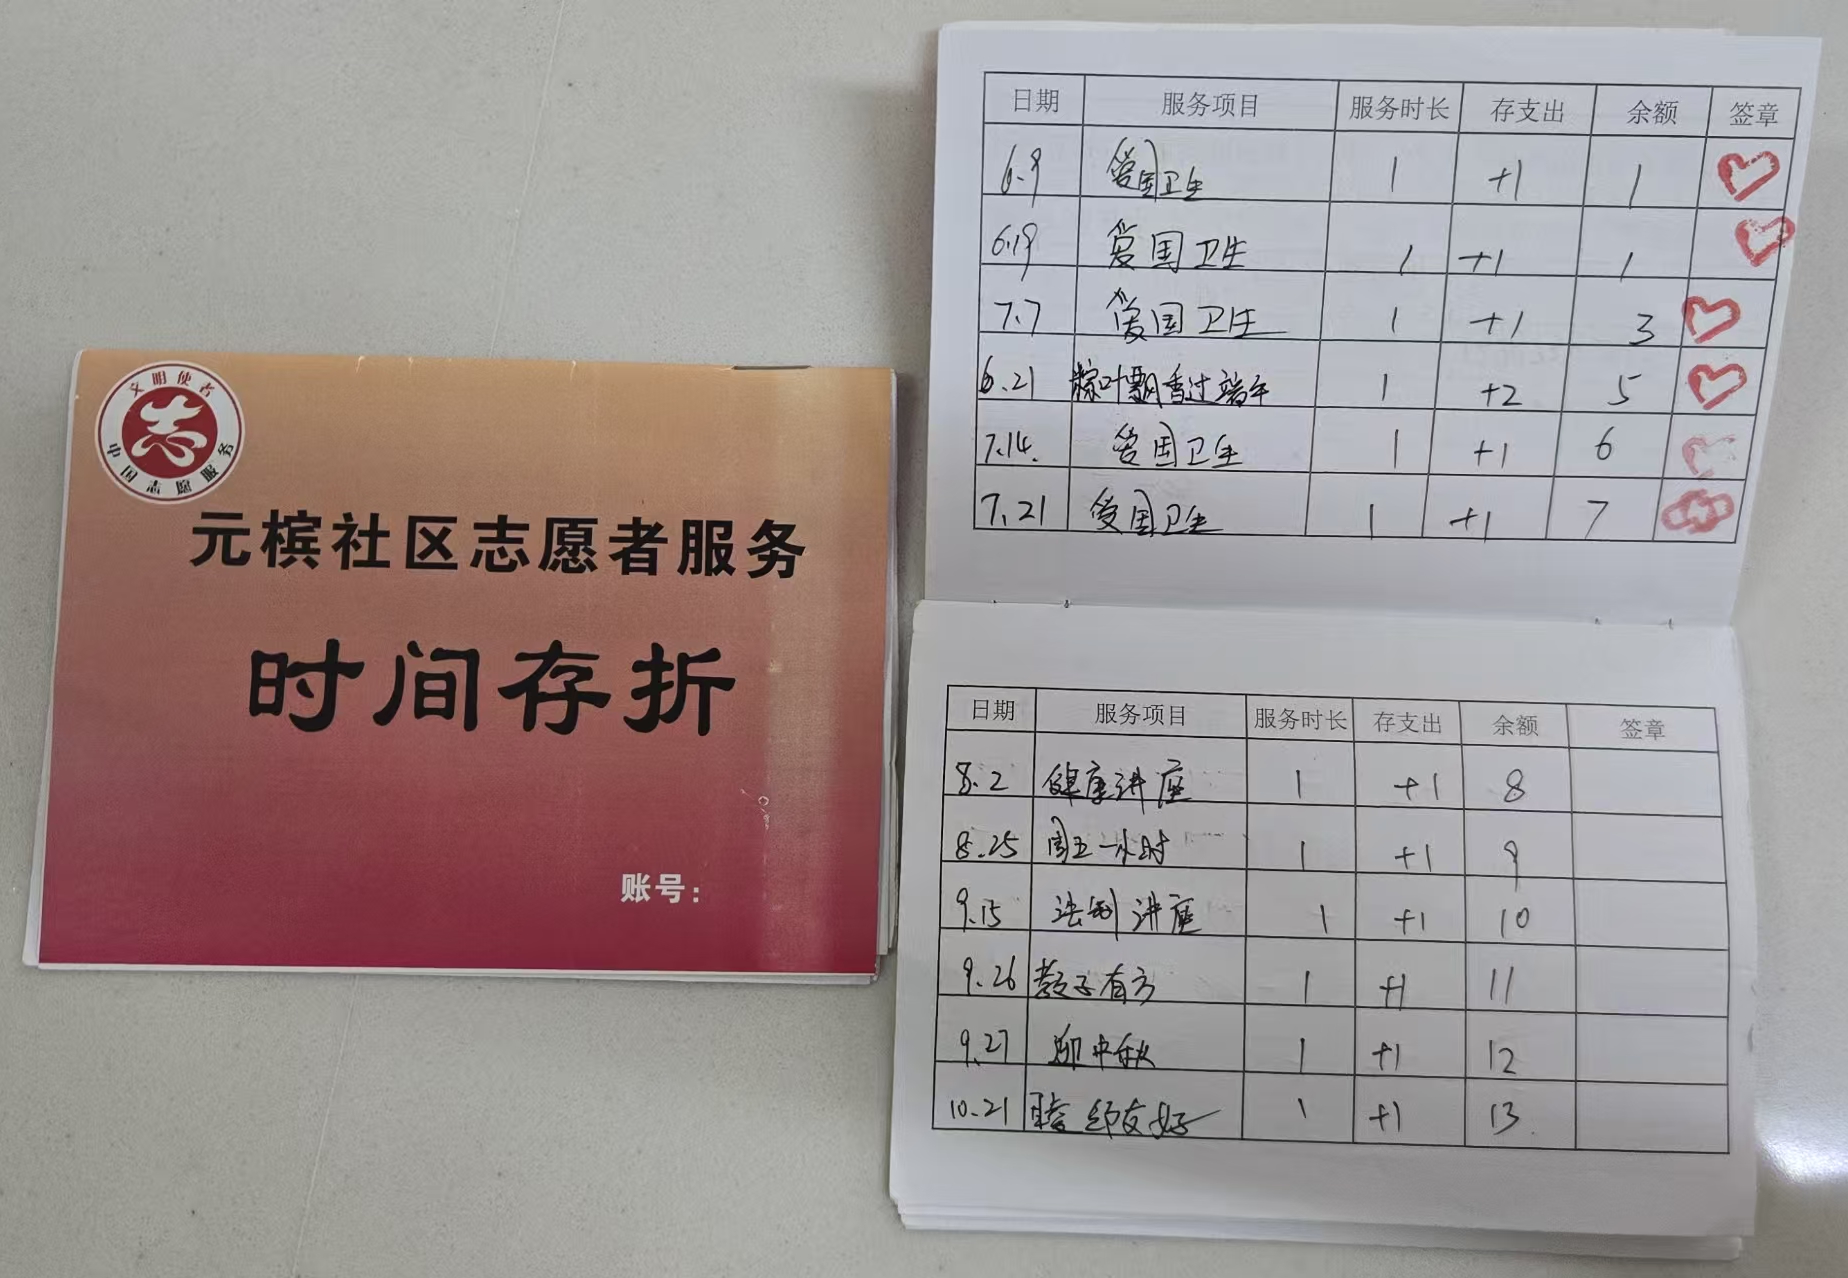 文明使者
志
中国志愿服务
元槟社区志愿者服务
时间存折
账号：
日期 服务项目 服务时长 存支出 余额 签章
6.9 爱国卫生 1 +1 1
6.19 爱国卫生 1 +1 1
7.7 爱国卫生 1 +1 3
6.21 粽叶飘香过端午 1 +2 5
7.14. 爱国卫生 1 +1 6
7.21 爱国卫生 1 +1 7
日期 服务项目 服务时长 存支出 余额 签章
8.2 健康讲座 1 +1 8
8.25 周五一小时 1 +1 9
9.15 法制讲座 1 +1 10
9.26 教子有方 1 +1 11
9.27 迎中秋 1 +1 12
10.21 友好 1 +1 13.